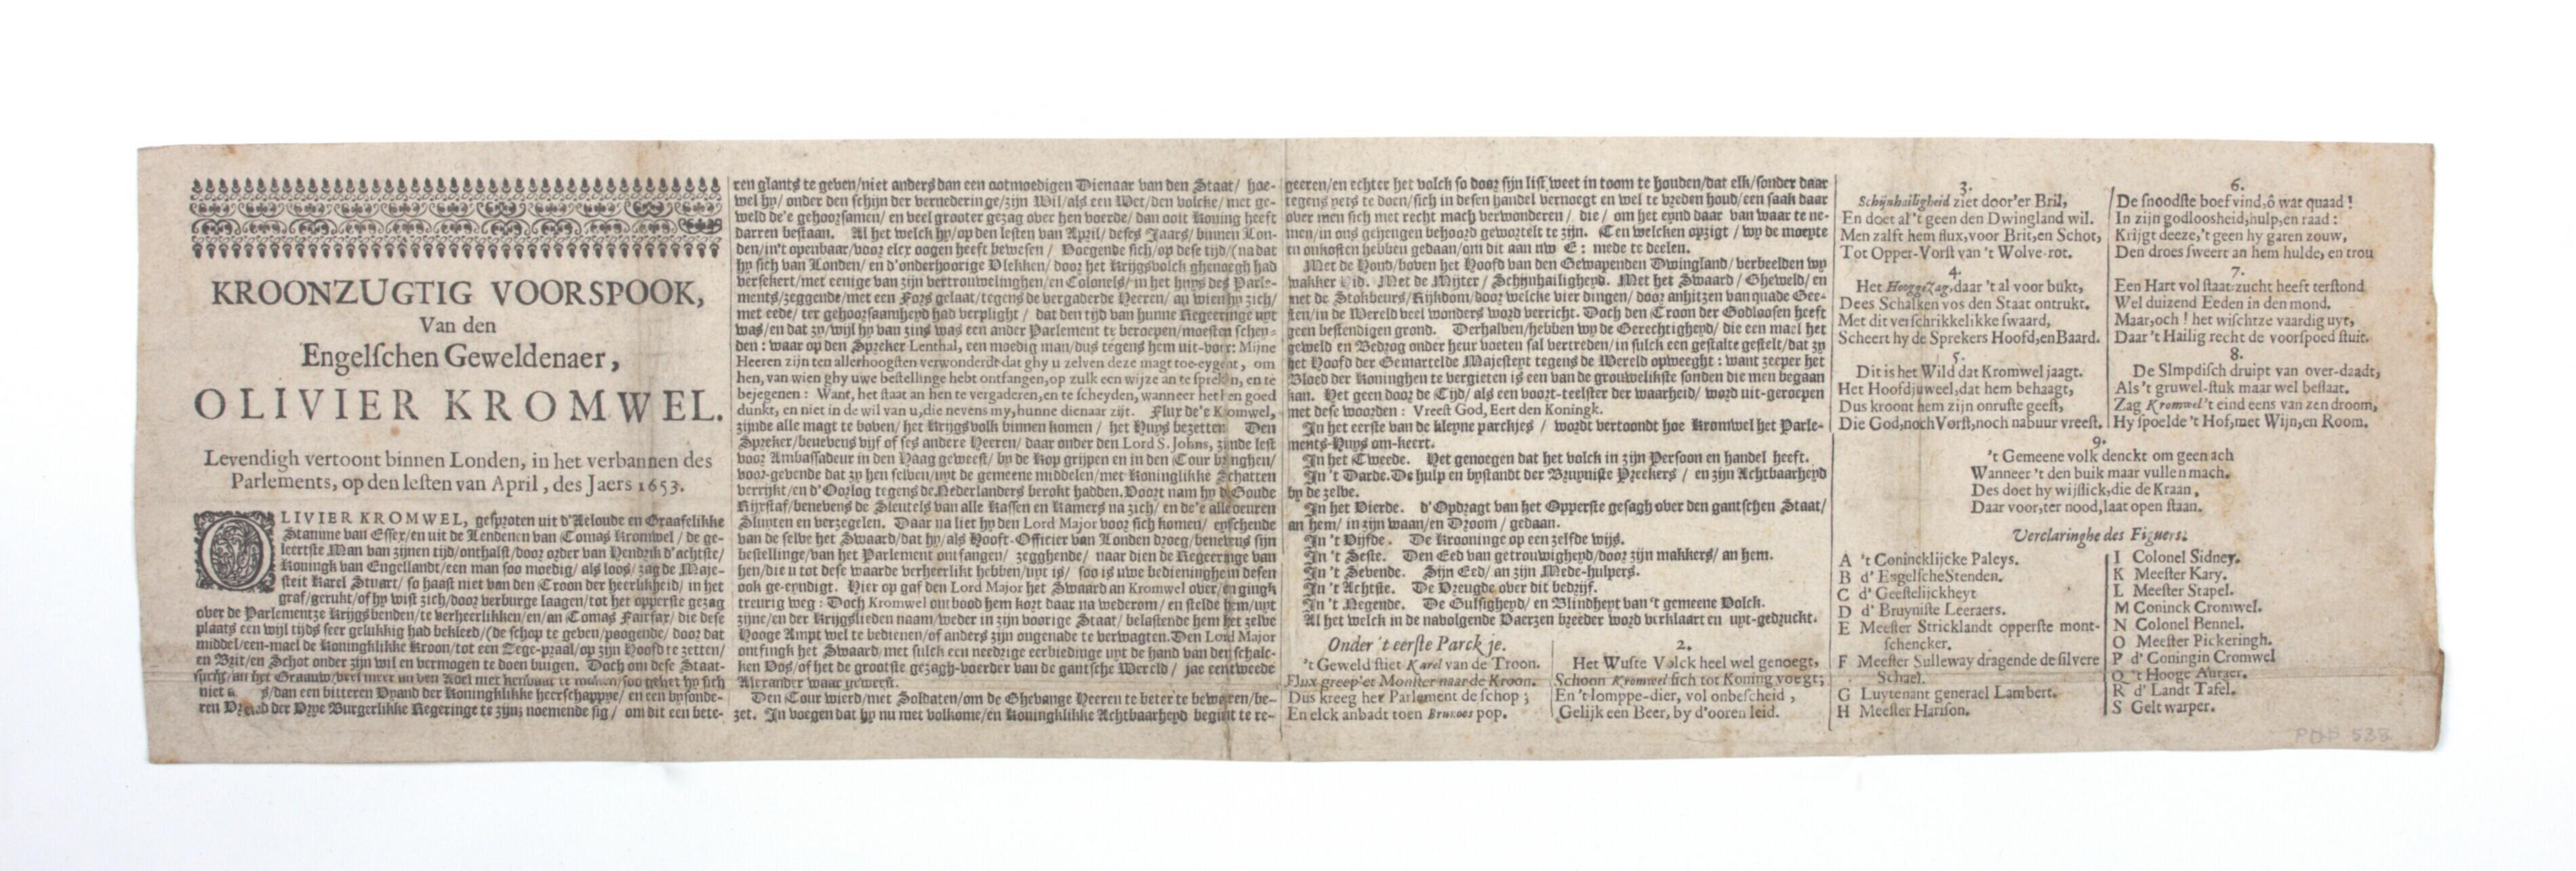 KROONZUGTIG VOORSPOOK,
Van den
Engelschen Geweldenaer,
OLIVIER KROMWEL.
Levendigh vertoont binnen Londen, in het verbannen des
Parlements, op den lesten van April, des Jaers 1653.
OLIVIER KROMWEL, gesproten uit d'Aeloude en Graafelikke
Stamme van Essex/en uit de Lendenen van Tomas Kromwel/ de ge-
leertste Man van zijnen tijd/onthalst/door order van Hendrik d'achtste/
Koningk van Engellandt/een man soo moedig/ als loos/ zag de Maje-
steit Karel Stuart/ so haast niet van den Troon der heerlikheid/ in het
graf/gerukt/of hy wist zich/door verburge laagen/tot het opperste gezag
over de Parlementze Krijgsbenden/te verheerlikken/en/an Tomas Fairfax/ die dese
plaats een wijl tijds seer gelukkig had bekleed/(de schop te geven/poogende/ door dat
middel/een-mael de Koningklikke Kroon/tot een Zege-praal/op zijn Hoofd te zetten/
en Brit/en Schot onder zijn wil en vermogen te doen buigen. Doch om dese Staat-
sucht/an het Graauw/veel meer an den Adel met te soo gehet hy sich
niet /dan een bitteren Vyand der Koningklikke heerschappye/ en een bysonde-
ren der Vrye Burgerlikke Regeringe te zijn; noemende sig/ om dit een bete-
ren glants te geven/niet anders dan een ootmoedigen Dienaar van den Staat/ hoe-
wel hy/ onder den schijn der vernederinge/zijn Wil/als een Wet/den volcke/ met ge-
weld de'e gehoorsamen/ en veel grooter gezag over hen voerde/ dan ooit Koning heeft
darren bestaan. Al het welck hy/op den lesten van April/ deses Jaars/ binnen Lon-
den/in't openbaar/voor elcx oogen heeft bewesen/ Voegende sich/op dese tijd/(na dat
hy sich van Londen/ en d'onderhoorige Vlekken/ door het Krijgsvolck ghenoegh had
versekert/met eenige van zijn vertrouwelinghen/en Colonels/ in het huys des Parle-
ments/zeggende/met een Fors gelaat/tegens de vergaderde Heeren/ an wien hy zich/
met eede/ ter gehoorsaamheyd had verplight/ dat den tijd van hunne Regeeringe uyt
was/en dat zy/wijl hy van zins was een ander Parlement te beroepen/moesten schey-
den: waar op den Spreker Lenthal, een moedig man/dus tegens hem uit-voer: Mijne
Heeren zijn ten allerhoogsten verwonderdt dat ghy u zelven deze magt toe-eygent, om
hen, van wien ghy uwe bestellinge hebt ontfangen, op zulk een wijze an te spreken, en te
bejegenen: Want, het staat an hen te vergaderen, en te scheyden, wanneer het hen goed
dunkt, en niet in de wil van u, die nevens my, hunne dienaar zijt. Flux de'e Kromwel,
zijnde alle magt te boven/het Krijgsvolk binnen komen/ het Huys bezetten Den
Spreker/benevens vijf of ses andere Heeren/ daar onder den Lord S. Johns, zijnde lest
voor Ambassadeur in den Haag geweest/ by de Kop grijpen en in den Tour bringhen/
voor-gevende dat zy hen selven/uyt de gemeene middelen/met Koninglikke Schatten
verrijkt/en d'Oorlog tegens de Nederlanders berokt hadden. Voort nam hy d'Goude
Rijxstaf/benevens de Sleutels van alle Kassen en Kamers na zich/ en de'e alle deuren
Sluyten en verzegelen. Daar na liet hy den Lord Major voor sich komen/ eyschende
van de selve het Swaard/dat hy/als Hooft-Officier van Londen droeg/benevens sijn
bestellinge/van het Parlement ontfangen/ zegghende/ naar dien de Regeeringe van
hen/die u tot dese waarde verheerlikt hebben/uyt is/ soo is uwe bedieninghe in desen
ook ge-eyndigt. Hier op gaf den Lord Major het Swaard an Kromwel over/en gingk
treurig weg: Doch Kromwel ontbood hem kort daar na wederom/ en stelde hem/uyt
zijne/en der Krijgslieden naam/weder in zijn voorige Staat/ belastende hem het zelve
Hooge Ampt wel te bedienen/of anders zijn ongenade te verwagten. Den Lord Major
ontfingk het Swaard/met sulck een needrige eerbiedinge uyt de hand van den schalc-
ken Vos/of het de grootste gezagh-voerder van de gantsche Wereld/ jae een tweede
Alexander waar geweest.
Den Tour wierd/met Soldaten/om de Ghevange Heeren te beter te bewaren/be-
zet. In voegen dat hy nu met volkome/en Koningklikke Achtbaarheyd begint te re-
geeren/en echter het volck so door sijn list weet in toom te houden/dat elk/sonder daar
tegens yets te doen/sich in desen handel vernoegt en wel te vreden houd/een saak daar
over men sich met recht mach verwonderen/ die/ om het eynd daar van waar te ne-
men/in ons geheugen behoord gewortelt te zijn. Ten welcken opzigt/ wy de moeyte
en onkosten hebben gedaan/om dit aan uw E: mede te deelen.
Met de Hond/boven het Hoofd van den Gewapenden Dwingland/ verbeelden wy
wakker Met de Mijter/ Schijnhailigheyd. Met het Swaard/ Gheweld/ en
met de Stokbeurs/Rijkdom/door welcke vier dingen/ door anhitzen van quade Gee-
sten/in de Wereld veel wonders word verricht. Doch den Troon der Godloosen heeft
geen bestendigen grond. Derhalven/hebben wy de Gerechtigheyd/ die een mael het
geweld en Bedrog onder heur voeten sal vertreden/in sulck een gestalte gestelt/dat zy
het Hoofd der Gemartelde Majesteyt tegens de Wereld opweeght: want zeeper het
Bloed der Koninghen te vergieten is een van de grouwelikste sonden die men begaan
kan. Het geen door de Tijd/ als een voort-teelster der waarheid/ word uit-geroepen
met dese woorden: Vreest God, Eert den Koningk.
In het eerste van de kleyne parckjes/ wordt vertoondt hoe Kromwel het Parle-
ments-Huys om-keert.
In het Tweede. Het genoegen dat het volck in zijn Persoon en handel heeft.
In 't Darde. De hulp en bystandt der Bruyniste Preekers/ en zijn Achtbaarheyd
by de zelve.
In het Vierde. d'Opdragt van het Opperste gesagh over den gantschen Staat/
an hem/ in zijn waan/en Droom/ gedaan.
In 't Vijfde. De Krooninge op een zelfde wijs.
In 't Seste. Den Eed van getrouwigheyd/door zijn makkers/ an hem.
In 't Sevende. Sijn Eed/ an zijn Mede-hulpers.
In 't Achtste. De Vreugde over dit bedrijf.
In 't Negende. De Gulsigheyd/ en Blindheyt van 't gemeene Volck.
Al het welck in de navolgende Vaerzen breeder word verklaart en uyt-gedruckt.
Onder 't eerste Parckje.
't Geweld stiet Karel van de Troon.
Flux greep'et Monster naar de Kroon.
Dus kreeg her Parlement de schop;
En elck anbadt toen Brunoos pop.
2.
Het Wuste Volck heel wel genoegt,
Schoon Kromwel sich tot Koning voegt;
En 't lomppe-dier, vol onbescheid,
Gelijk een Beer, by d'ooren leid.
3.
Schijnhailigheid ziet door'er Bril,
En doet al't geen den Dwingland wil.
Men zalft hem flux, voor Brit, en Schot,
Tot Opper-Vorst van 't Wolve-rot.
4.
Het HooggeZag, daar 't al voor bukt,
Dees Schalken vos den Staat ontrukt.
Met dit verschrikkelikke swaard,
Scheert hy de Sprekers Hoofd, en Baard.
5.
Dit is het Wild dat Kromwel jaagt.
Het Hoofdjuweel, dat hem behaagt,
Dus kroont hem zijn onruste geest,
Die God, noch Vorst, noch nabuur vreest.
6.
De snoodste boef vind, ô wat quaad!
In zijn godloosheid, hulp, en raad:
Krijgt deeze, 't geen hy garen zouw,
Den droes sweert an hem hulde, en trou
7.
Een Hart vol staat-zucht heeft terstond
Wel duizend Eeden in den mond.
Maar, och! het wischtze vaardig uyt,
Daar 't Hailig recht de voorspoed stuit.
8.
De Slmpdisch druipt van over-daadt,
Als 't gruwel-stuk maar wel bestaat.
Zag Kromwel 't eind eens van zen droom,
Hy spoelde 't Hof, met Wijn, en Room.
9.
't Gemeene volk denckt om geen ach
Wanneer 't den buik maar vullen mach.
Des doet hy wijslick, die de Kraan,
Daar voor, ter nood, laat open staan.
Verclaringhe des Figuers.
A 't Conincklijcke Paleys.
B d' Engelsche Stenden.
C d' Geestelijckheyt
D d' Bruyniste Leeraers.
E Meester Stricklandt opperste mont-
schencker.
F Meester Sulleway dragende de silvere
Schael.
G Luytenant generael Lambert.
H Meester Harison.
I Colonel Sidney.
K Meester Kary.
L Meester Stapel.
M Coninck Cromwel.
N Colonel Bennel.
O Meester Pickeringh.
P d' Coningin Cromwel
Q 't Hooge Autaer.
R d' Landt Tafel.
S Gelt warper.